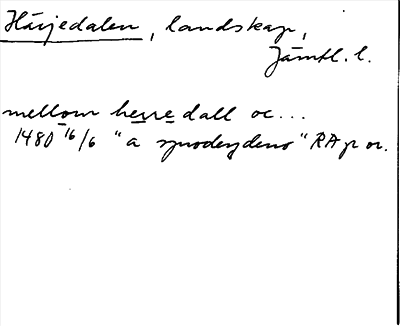 Härjedalen, landskap,
Jämtl. l.
mellom herre dall oc...
1480 16/6 "a RA p or.